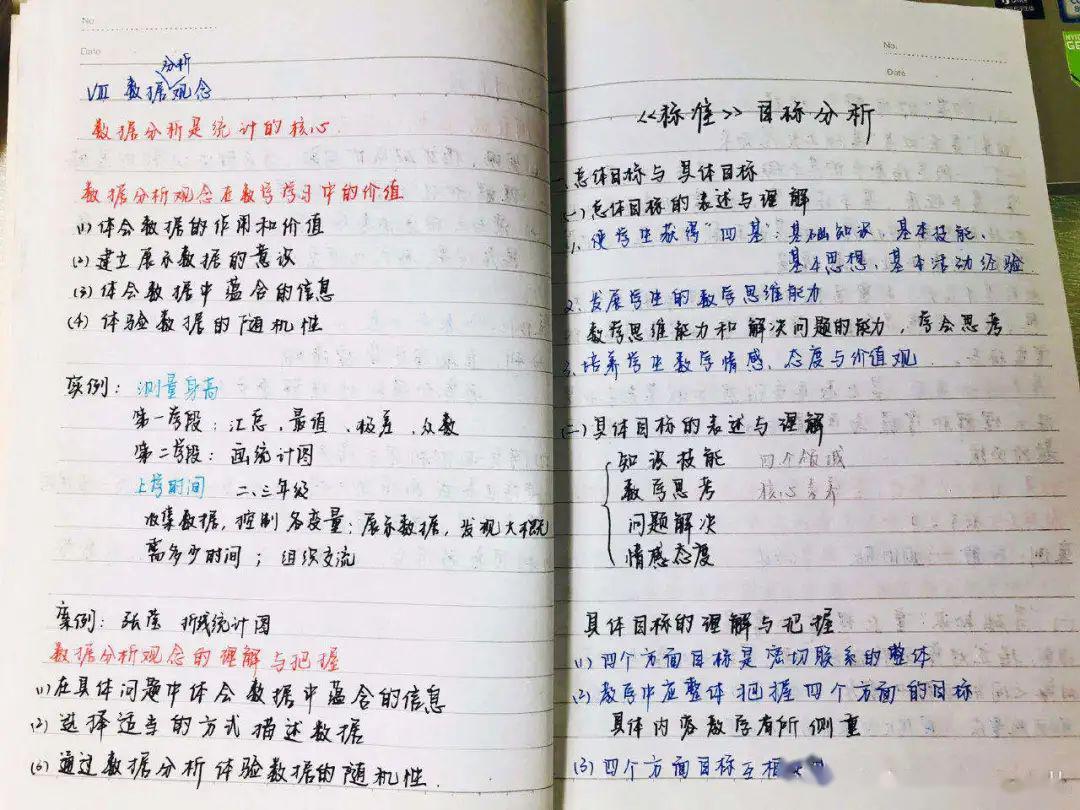 No
Date
分析
VIII 数据观念
数据分析是统计的核心.
数据分析观念在数学学习中的价值
(1) 体会数据的作用和价值
(2) 建立展示数据的意识
(3) 体会数据中蕴含的信息
(4) 体验数据的随机性
案例: 测量身高
第一学段: 汇总、最值、极差、众数
第二学段: 画统计图
上学时间 二、三年级
收集数据, 控制各变量; 展示数据, 发现大概
需多少时间; 组织交流
案例: 张莹 折线统计图
数据分析观念的理解与把握
(1) 在具体问题中体会数据中蕴含的信息
(2) 选择适当的方式描述数据
(3) 通过数据分析体验数据的随机性.
No.
Date
《标准》目标分析
一、总体目标与具体目标
(一) 总体目标的表述与理解
1、使学生获得"四基": 基础知识、基本技能、
基本思想、基本活动经验
2、发展学生的数学思维能力
数学思维能力和解决问题的能力, 学会思考
3、培养学生数学情感、态度与价值观.
(二) 具体目标的表述与理解
知识技能 四个领域
数学思考 核心素养
问题解决
情感态度
具体目标的理解与把握
(1) 四个方面目标是密切联系的整体
(2) 教学中应整体把握四个方面的目标
具体内容教学有所侧重
(3) 四个方面目标互相